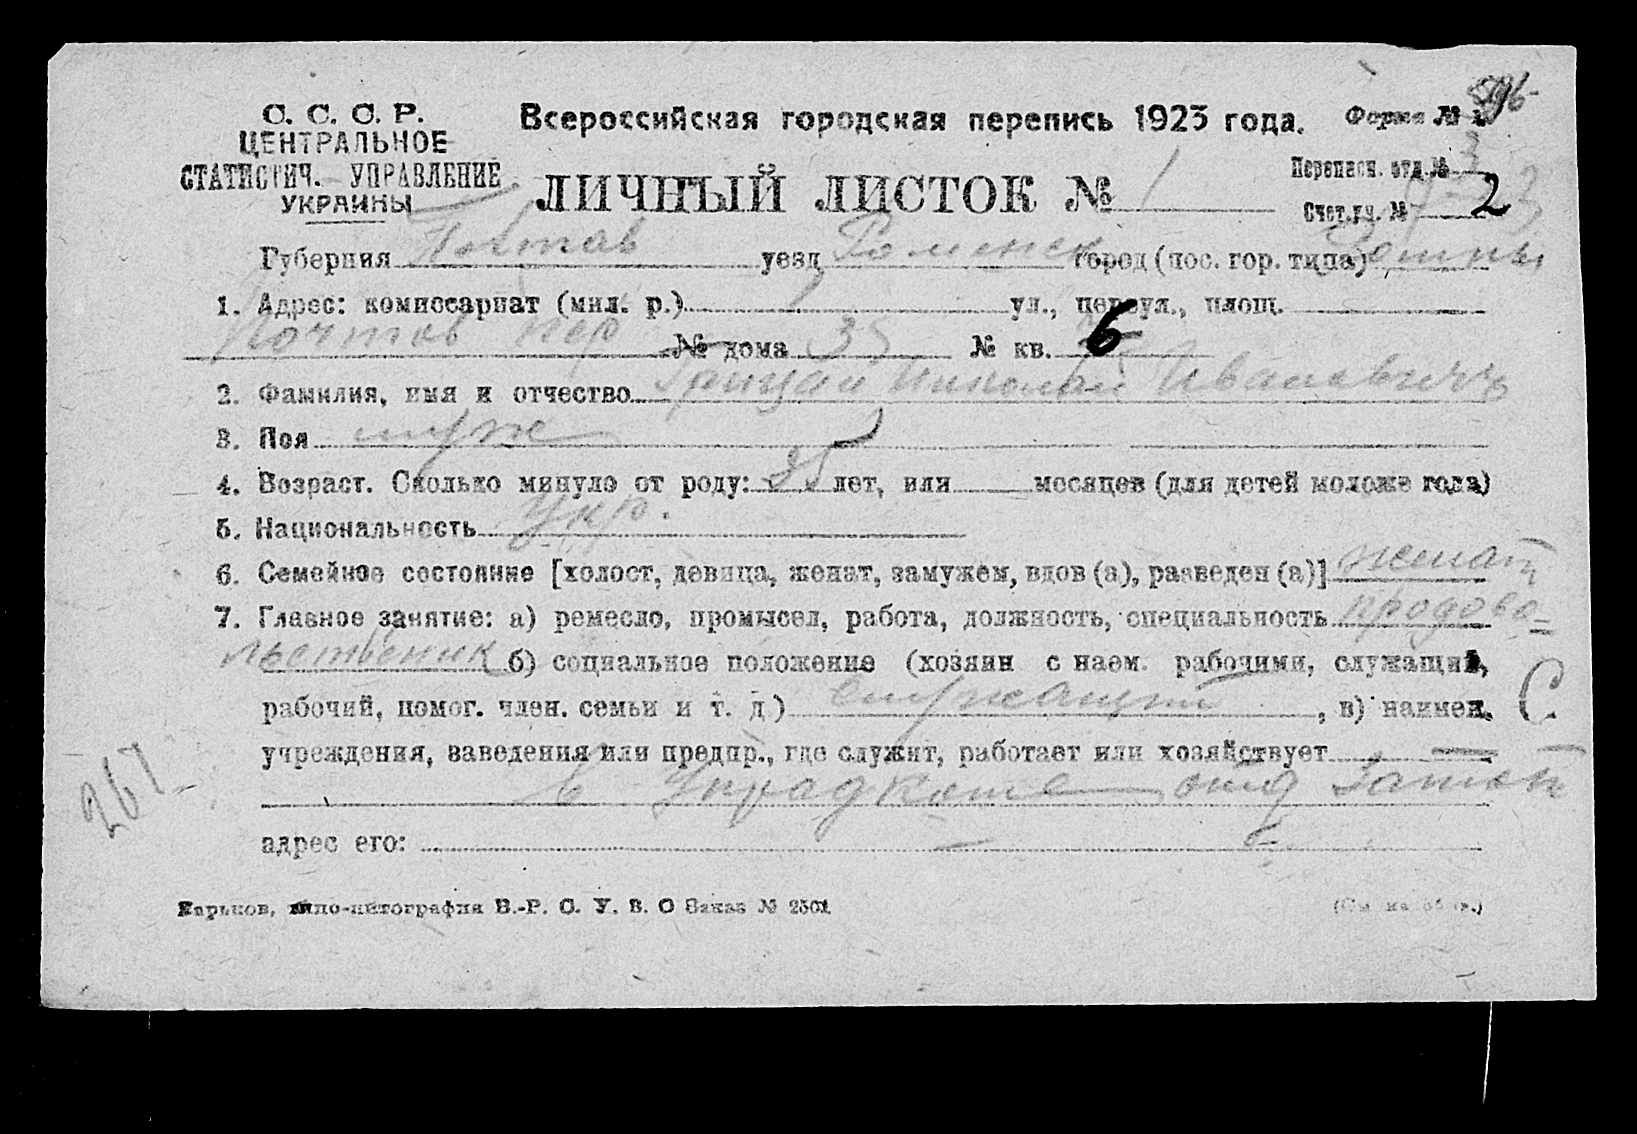 596
С. С. С. Р.
ЦЕНТРАЛЬНОЕ
СТАТИСТИЧ. УПРАВЛЕНИЕ
УКРАИНЫ
Всероссийская городская перепись 1923 года. Форма № 1.
ЛИЧНЫЙ ЛИСТОК № 1
Переписн. отд. № 3
Счет. уч. № 2
Губерния Полтав уезд Роменск город (пос. гор. типа) Ромны
1. Адрес: комиссариат (мил. р.) 1 ул., переул., площ.
Почтов пер № дома 35 № кв. 6
2. Фамилия, имя и отчество Грицай Николай Иванович
3. Пол муж
4. Возраст. Сколько минуло от роду: 35 лет, или месяцев (для детей моложе года)
5. Национальность Укр.
6. Семейное состояние [холост, девица, женат, замужем, вдов (а), разведен (а)] женат
7. Главное занятие: а) ремесло, промысел, работа, должность, специальность продово=
льственик б) социальное положение (хозяин с наем. рабочими, служащий,
рабочий, помог. член. семьи и т. д.) служащий, в) наимен. С
учреждения, заведения или предпр., где служит, работает или хозяйствует
в Упрадкоме
адрес его:
267
Харьков, типо-литография В.-Р. С. У. В. О Заказ № 2501
(См. на обор.)